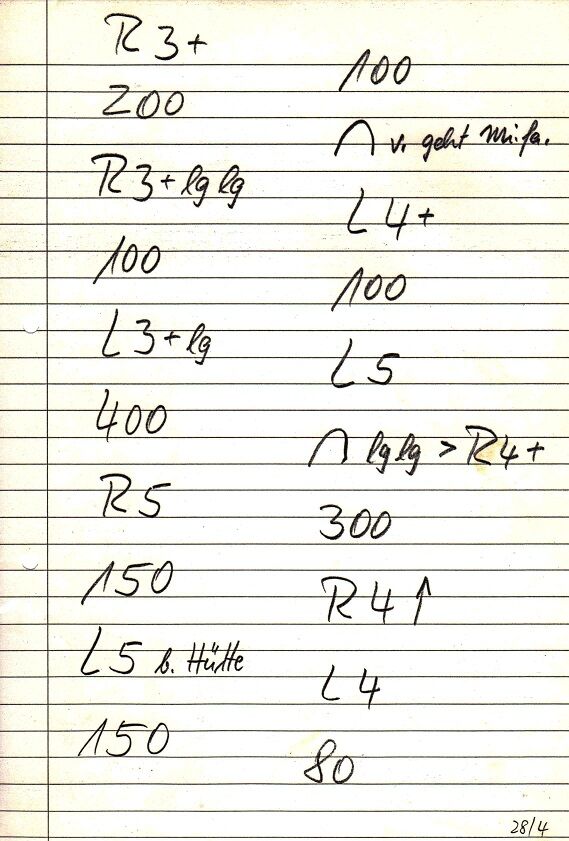 R 3+
200
R 3+ lg lg
100
L 3+ lg
400
R 5
150
L 5 b. Hütte
150
100
∩ v. geht m. fa.
L 4+
100
L 5
∩ lg lg > R 4+
300
R 4 ↑
L 4
80
28/4